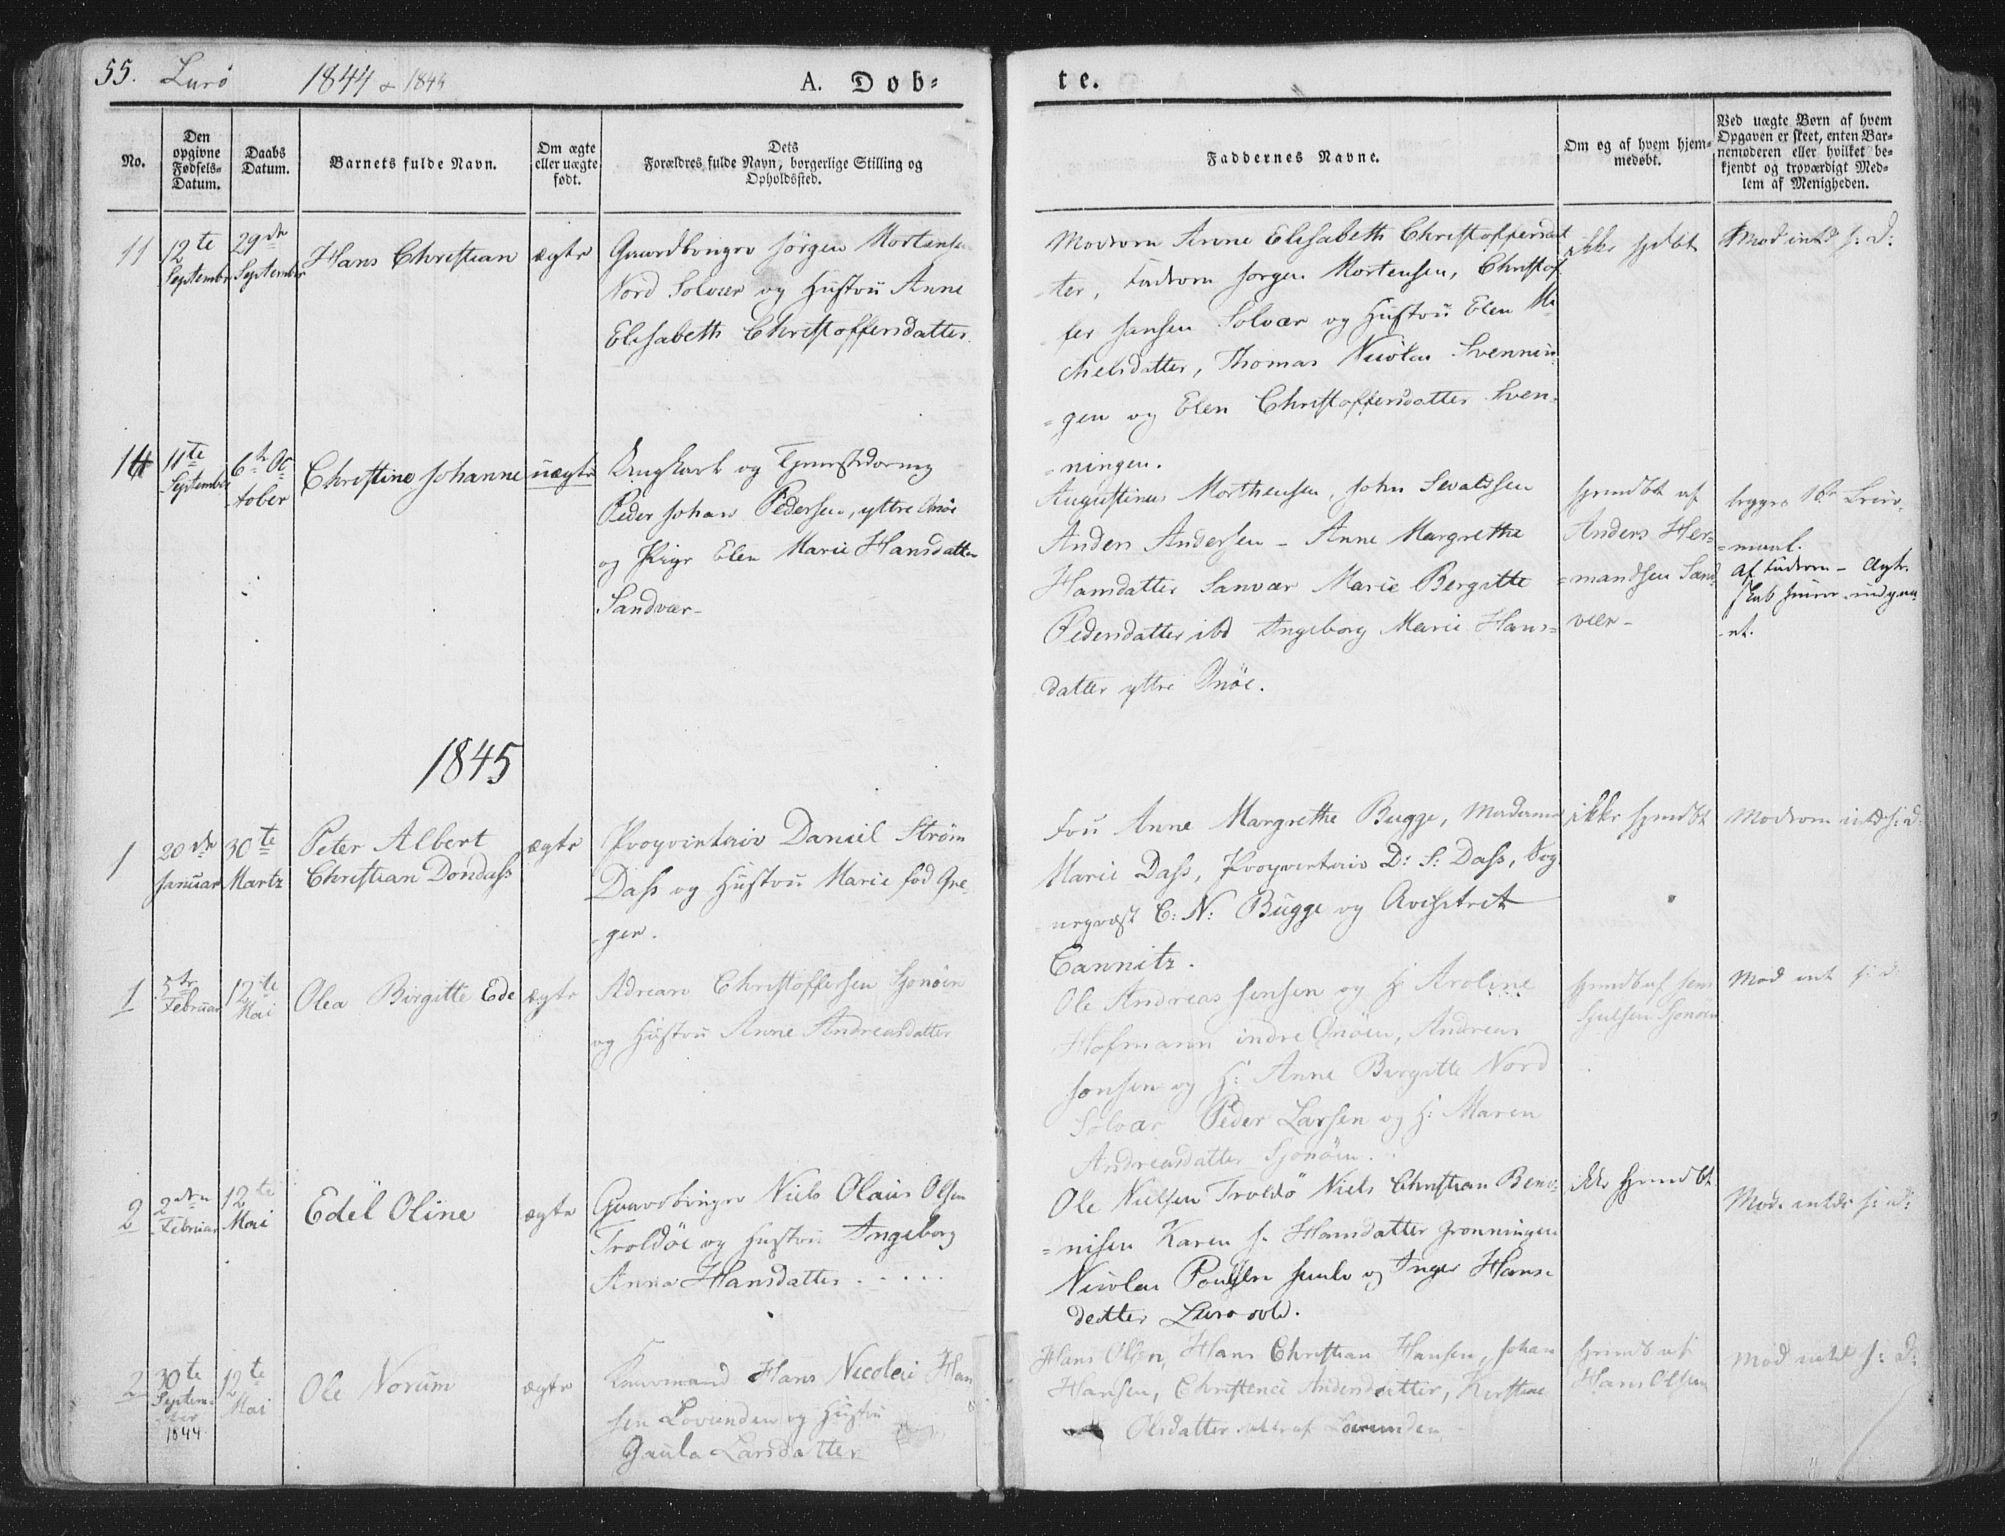 55. Lurö 1844 & 1845 A. Dob=
te.
No.
Den opgivne Fødsels-Datum.
Daabs Datum.
Barnets fulde Navn.
Om ægte eller uægte født.
Dets
Forældres fulde Navn, borgerlige Stilling og
Opholdssted.
Faddernes Navne.
Om og af hvem hjem=
medøbt.
Ved uægte Børn af hvem
Opgaven er skeet, enten Bar=
nemoderen eller hvilket be=
kjendt og troværdigt Med=
lem af Menigheden.
11
12te September
29de September
Hans Christian
ægte
Gaardbruger Jørgen Mortensen
Nord Solvær og Hustru Anne
Elisabeth Christoffersdatter
Moderen Anne Elisabeth Christoffersdat
-ter, Faderen Jørgen Mortensen, Christof
fer Jansen Solvær og Hustru Elen Mi
chelsdatter, Thomas Nicolai Svennin
=gen og Elen Christoffersdatter Sven=
=ningen.
ikke hjdbt
Mod: intd s: d:
14
11te September
6te October
Christine Johanne
uægte
Ungkarl og
Peder Johan Pedersen, yttre Onöe
og Pige Elen Marie Hansdatter
Sandvær-
Augustinus Morthensen, John Sevaldsen
Anders Andersen - Anne Margrethe
Hansdatter Sanvær Marie Bergitte
Pedersdatter ibd Ingeborg Marie Hans=
datter yttre Onöe.
hjmdbt af
Anders Her=
=mandsen Sand
vær-
begges 1ste Leier-
=maal.
af Faderen -
1845
1
20de Januar
30te Martz
Peter Albert
Christian Dondass
ægte
Proprietair Daniel Ström
Dass og Hustru Marie fød Gre-
-ger.
Fru Anne Margrethe Bugge, Madame
Marie Dass, Proprietair D: S: Dass, Sog
nepræst C: N: Bugge og
Cannitz.
ikke hjmdbt
Moderen intd s: d:
1
5te Februar
12te Mai
Olea Birgitte Ede
ægte
Adrean Christoffersen Sjonöen
og Hustru Anne Andreasdatter
Ole Andreas Jensen og H: Aroline
Hofmann indre Onöen, Andreas
Jonsen og H: Anne Birgitte Nord
Solvær Peder Larsen og H: Maren
Andreasdatter Sjonöen.
hjmdbt af Jens
Julsen Sjonöen
Mod int s: d:
2
2den Februar
12te Mai
Edel Oline
ægte
Gaardbruger Niels Olaus Olsen
Troldöe og Hustru Ingeborg
Anna Hansdatter
Ole Nielsen Troldö Niels Christian Ben
=nisen Karen J. Hansdatter Grønningen
Nicolai Poulsen og Inger Hans-
datter Lurö
ikke hjemdbt
Mod. intd: s: d:
2
30te September 1844
12te Mai
Ole Norum
ægte
Huusmand Hans Nicolai Han
sen Lovunden og Hustru
Gaula Larsdatter
Hans Olsen, Hans Christian Hansen, Johan
Hansen, Christence Andersdatter, Kirstine
Olsdatter alle af Lovunden
hjemdbt af
Hans Olsen
Mod intd s: d: